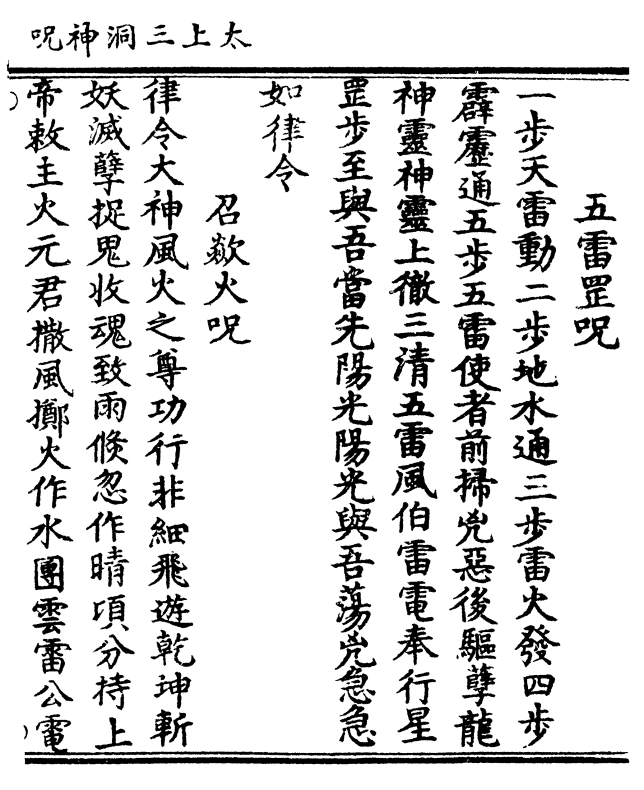 太上三洞神呪
五雷罡呪
一步天雷動二步地水通三步雷火發四步
霹靂通五步五雷使者前掃兇惡後驅孽龍
神靈神靈上徹三清五雷風伯雷電奉行星
罡步至與吾當先陽光陽光與吾蕩兇急急
如律令
召歘火呪
律令大神風火之尊功行非細飛遊乾坤斬
妖滅孽捉鬼收魂致雨倐忽作晴頃分持上
帝敕主火元君撒風擲火作水團雲雷公電